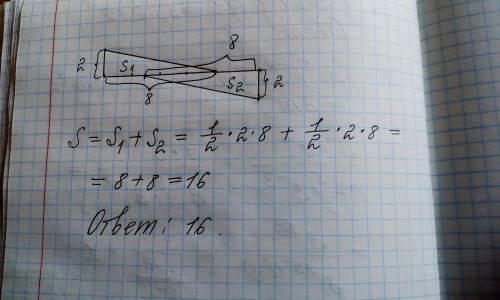 8
2 S₁ S₂ 2
8
S = S₁ + S₂ = 1/2 · 2 · 8 + 1/2 · 2 · 8 =
= 8 + 8 = 16
Ответ: 16.